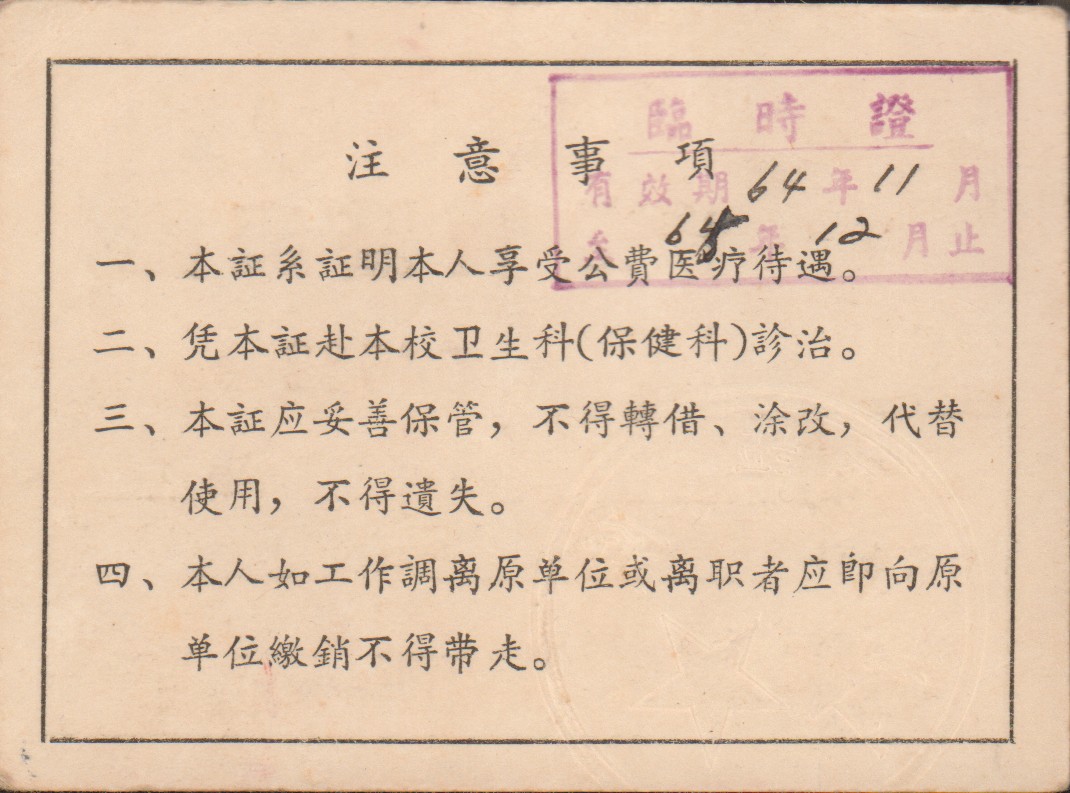 臨時證
注意事項
有效期64年11月
至65年12月止
一、本証系証明本人享受公費医疗待遇。
二、凭本証赴本校卫生科(保健科)診治。
三、本証应妥善保管，不得轉借、涂改，代替
使用，不得遺失。
四、本人如工作調离原单位或离职者应即向原
单位繳銷不得带走。